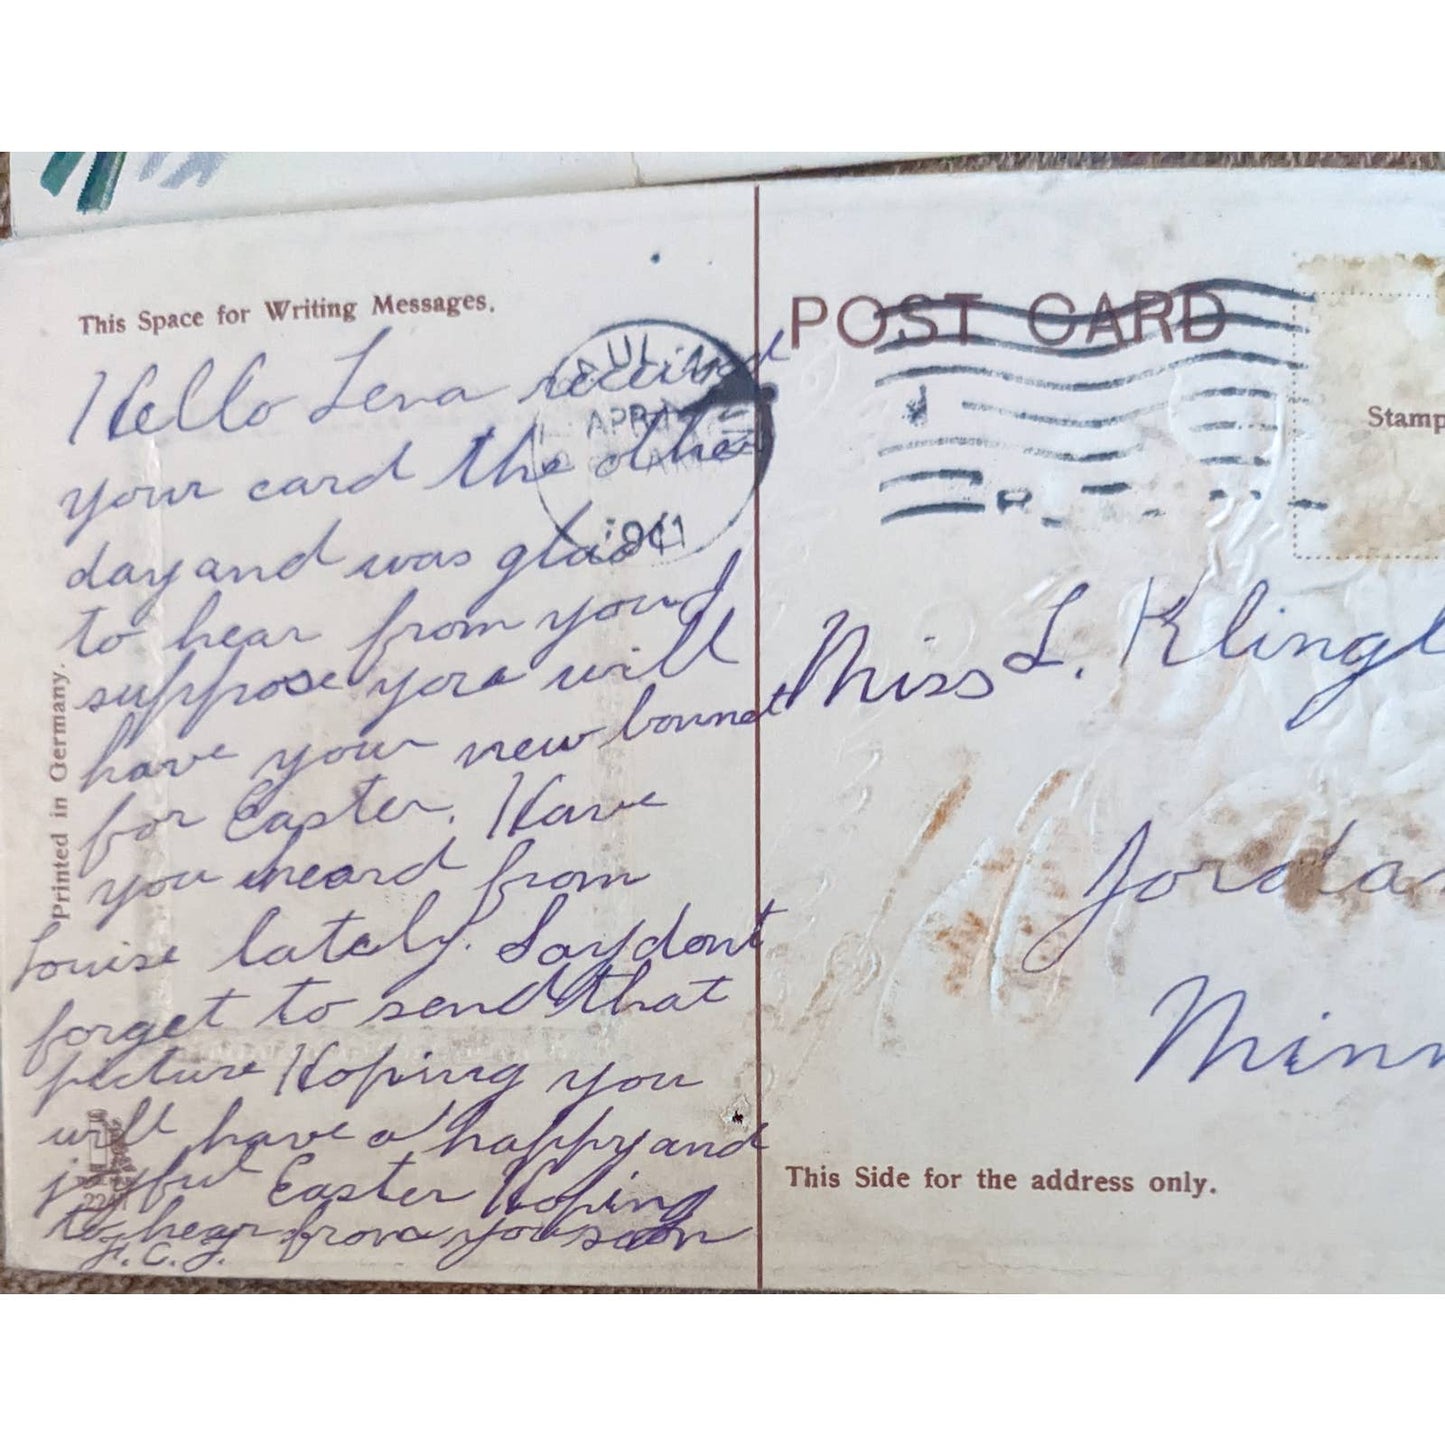 This Space for Writing Messages.
Hello Lena received
your card the other
day and was glad
to hear from you I
suppose you will
have your new bonnet
for Easter. Have
you heard from
Louise lately. Say dont
forget to send that
picture Hoping you
will have a happy and
joyful Easter Hoping
to hear from you soon
F. C. J.
Printed in Germany.
PAUL
APR
1911
POST CARD
Stamp
Miss L. Klingl
Jorda
Minn
This Side for the address only.